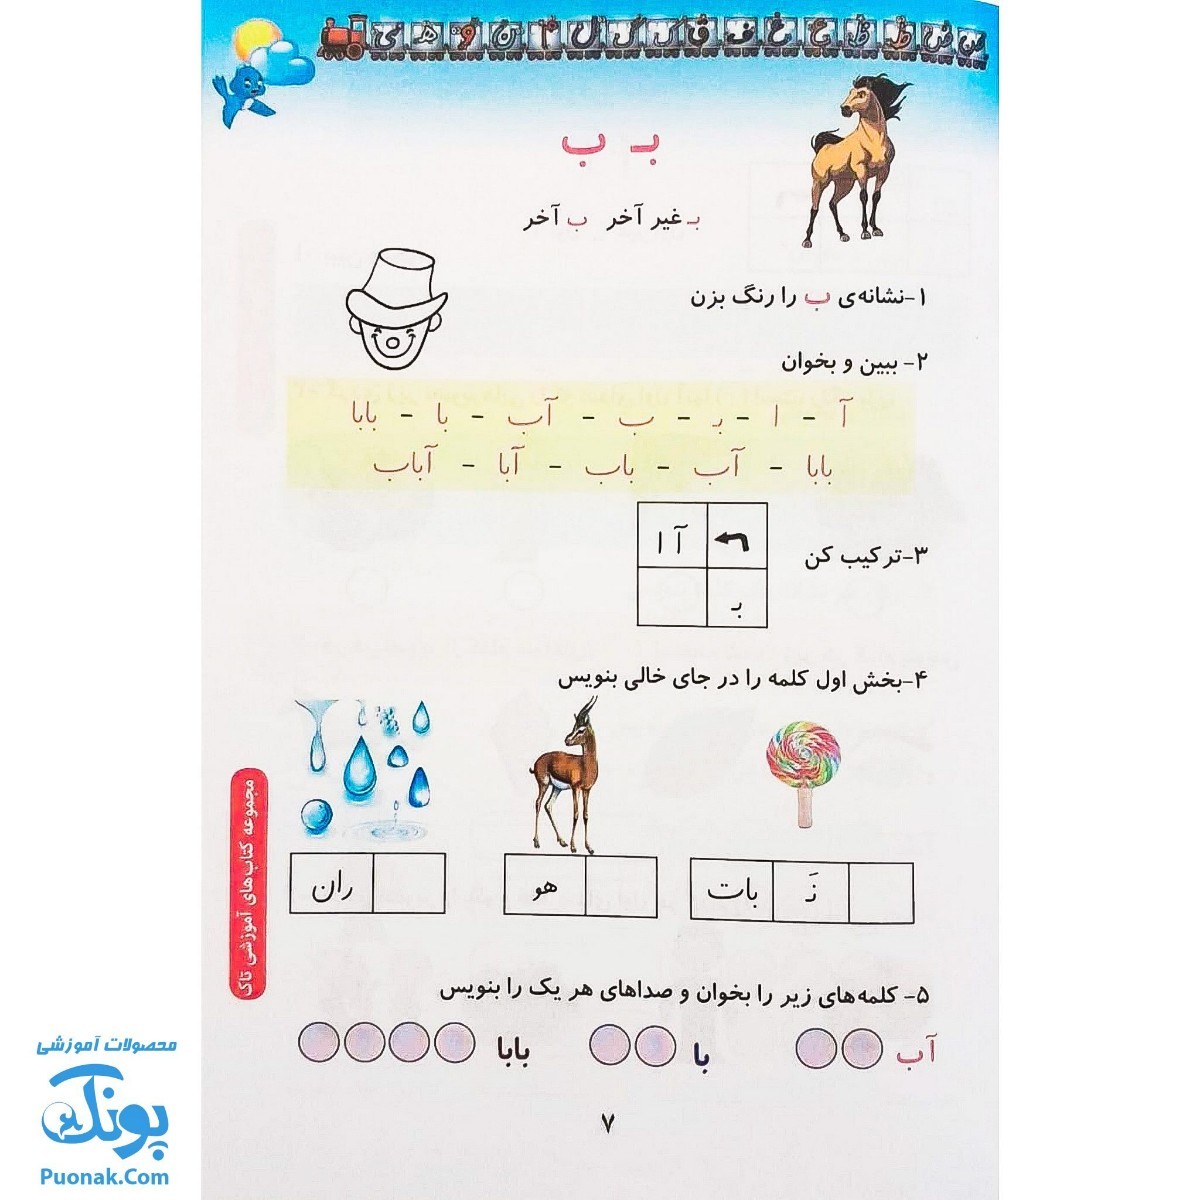 ی ه و ن م ل گ ک ق ف غ ع ظ ط ض ص
بـ ب
بـ غیر آخر ب آخر
۱-نشانه‌ی ب را رنگ بزن
۲- ببین و بخوان
آ - ا - بـ - ب - آب - با - بابا
بابا - آب - باب - آبا - آباب
۳-ترکیب کن
آ ا
بـ
۴-بخش اول کلمه را در جای خالی بنویس
نَـ بات
هو
ران
۵- کلمه‌های زیر را بخوان و صداهای هر یک را بنویس
آب
با
بابا
۷
مجموعه کتاب‌های آموزشی تاک
محصولات آموزشی
پونک
Puonak.Com